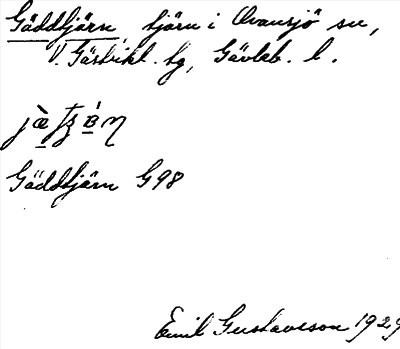 Gäddtjärn, tjärn i Ovansjö sn,
V. Gästrikl. tg, Gävleb. l.
Gäddtjärn G98
Emil Gustavsson 1929